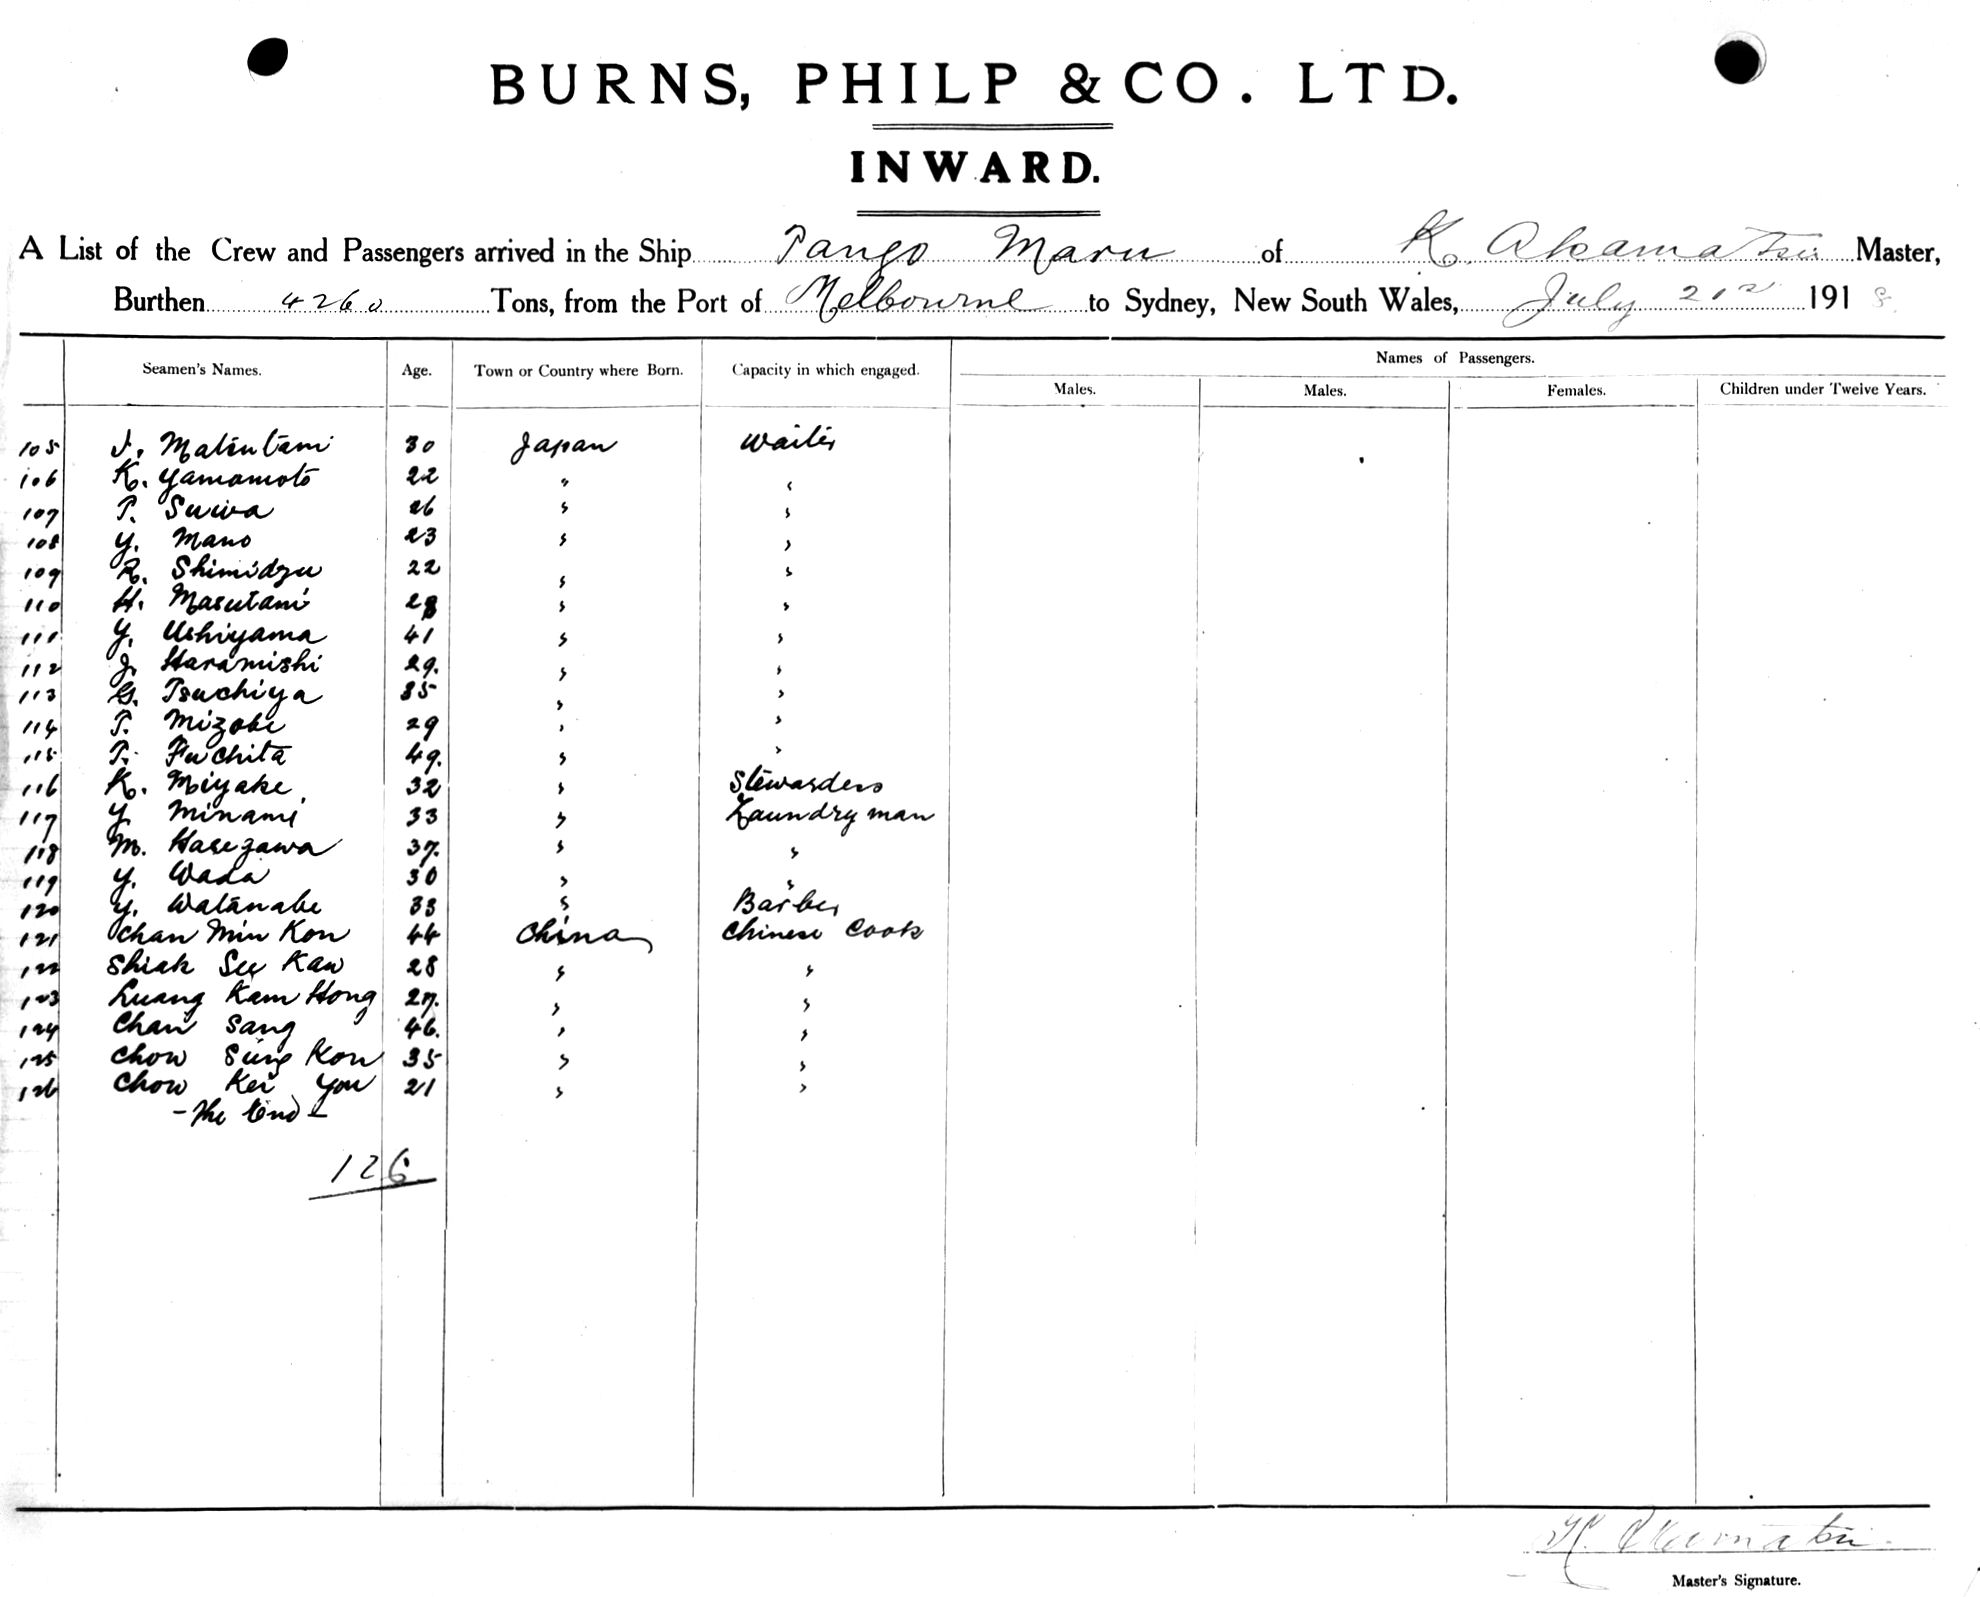 BURNS, PHILP & CO. LTD.
INWARD.
A List of the Crew and Passengers arrived in the Ship Tango Maru of K. Akamatsu Master,
Burthen 4260 Tons, from the Port of Melbourne to Sydney, New South Wales, July 1918
Names of Passengers.
Seamen's Names. Age. Town or Country where Born. Capacity in which engaged. Males. Males. Females. Children under Twelve Years.
105 J. Matsutami 30 Japan Waiter
106 K. Yamamoto 22 " "
107 T. Suiwa 26 " "
108 Y. Mano 23 " "
109 R. Shimidzu 22 " "
110 H. Masutani 28 " "
111 Y. Ushiyama 41 " "
112 J. Haramishi 29. " "
113 G. Tsuchiya 35 " "
114 T. Mizobe 29 " "
115 T. Fuchita 49. " "
116 K. Miyake 32 " Stewardess
117 Y. Minami 33 " Laundry man
118 M. Hasegawa 37. " "
119 Y. Wada 30 " "
120 Y. Watanabe 33 " Barber
121 Chan Min Kon 44 China Chinese Cook
122 Shiak See Kan 28 " "
123 Luang Kam Hong 27. " "
124 Chan Sang 46. " "
125 Chow Sing Kon 35 " "
126 Chow Kei You 21 " "
- The End -
126
K. Akamatsu
Master's Signature.